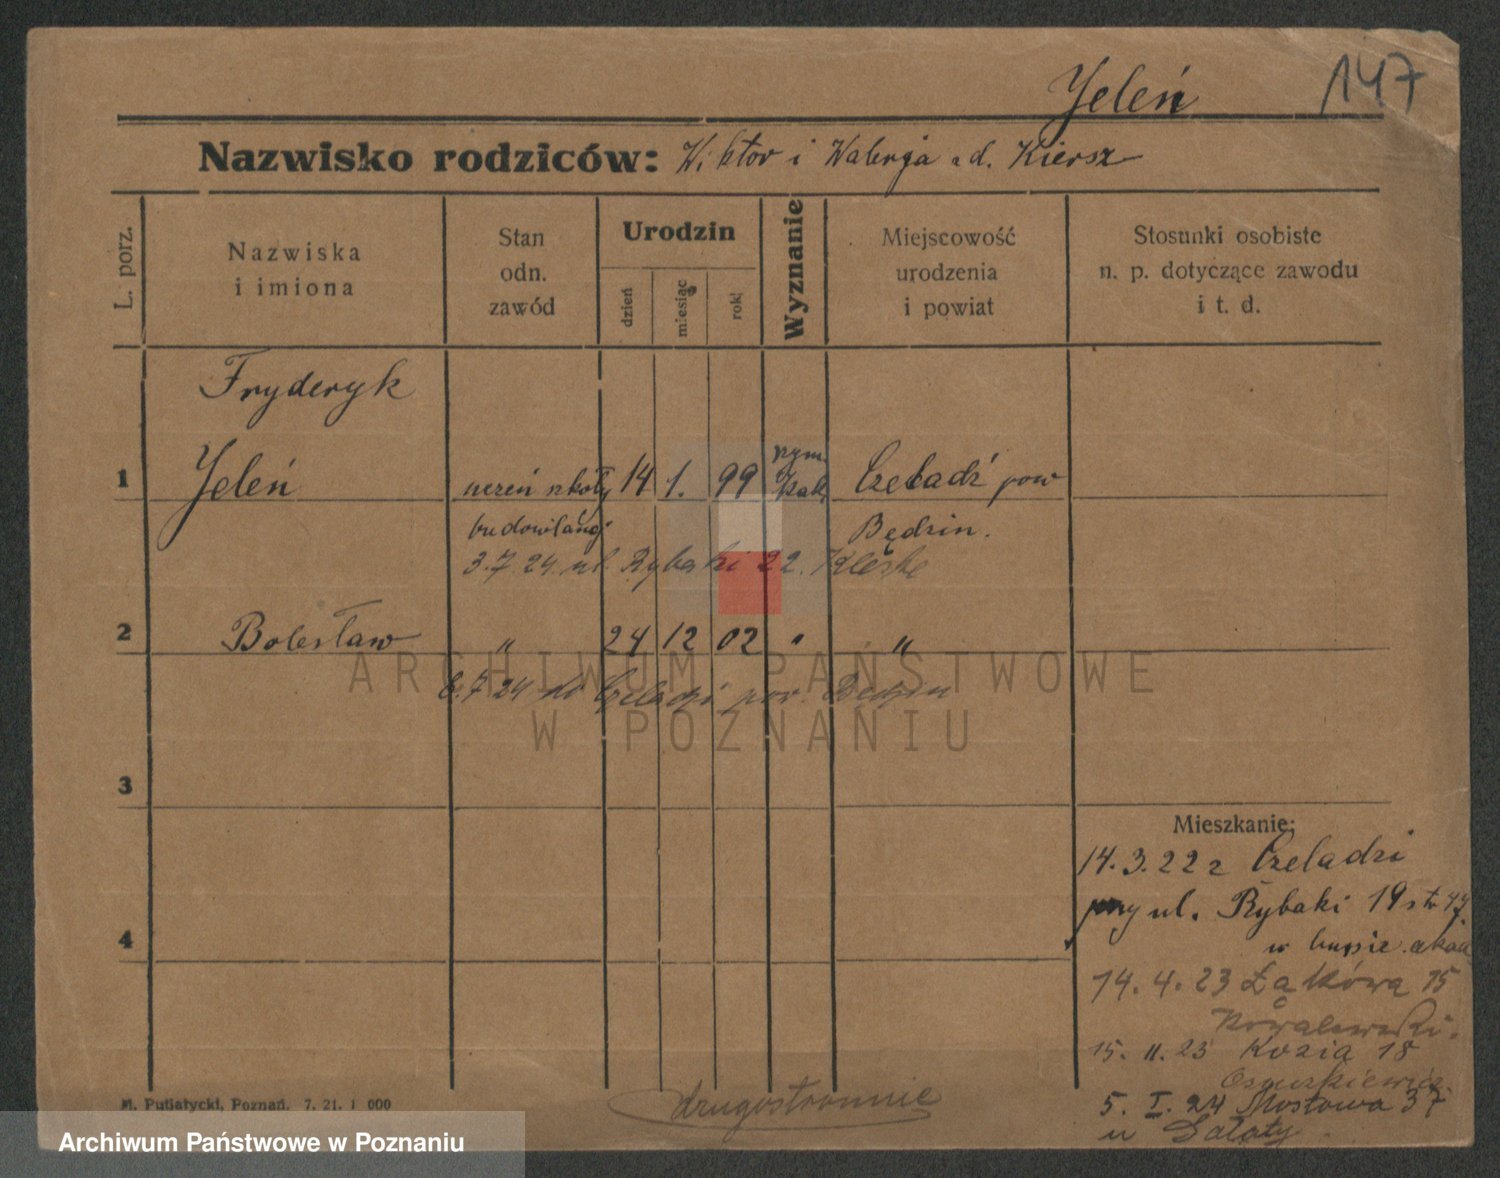 Jeleń 147
Nazwisko rodziców: Wiktor i Walerja z d. Kiersz
L. porz.
Nazwiska
i imiona
Stan
odn.
zawód
Urodzin
dzień
miesiąc
rok
Wyznanie
Miejscowość
urodzenia
i powiat
Stosunki osobiste
n. p. dotyczące zawodu
i t. d.
Fryderyk
1 Jeleń uczeń szkoły 14 1. 99 rzym. kat. Czeladź pow
budowlanej Będzin.
3.7.24 ul. Rybaki 22.
2 Bolesław " 24 12 02 " "
6.7.24 do Czeladzi pow. Będzin
ARCHIWUM PAŃSTWOWE
W POZNANIU
3
4
Mieszkanie:
14.3.22 z Czeladzi
przy ul. Rybaki 19
w
14.4.23 Łąkowa 15
Kowalewski.
15.11.23 Kozia 18
5.I.24 Mostowa 37
u Sałaty
drugostronnie
M. Putiatycki, Poznań. 7. 21. 1 000
Archiwum Państwowe w Poznaniu